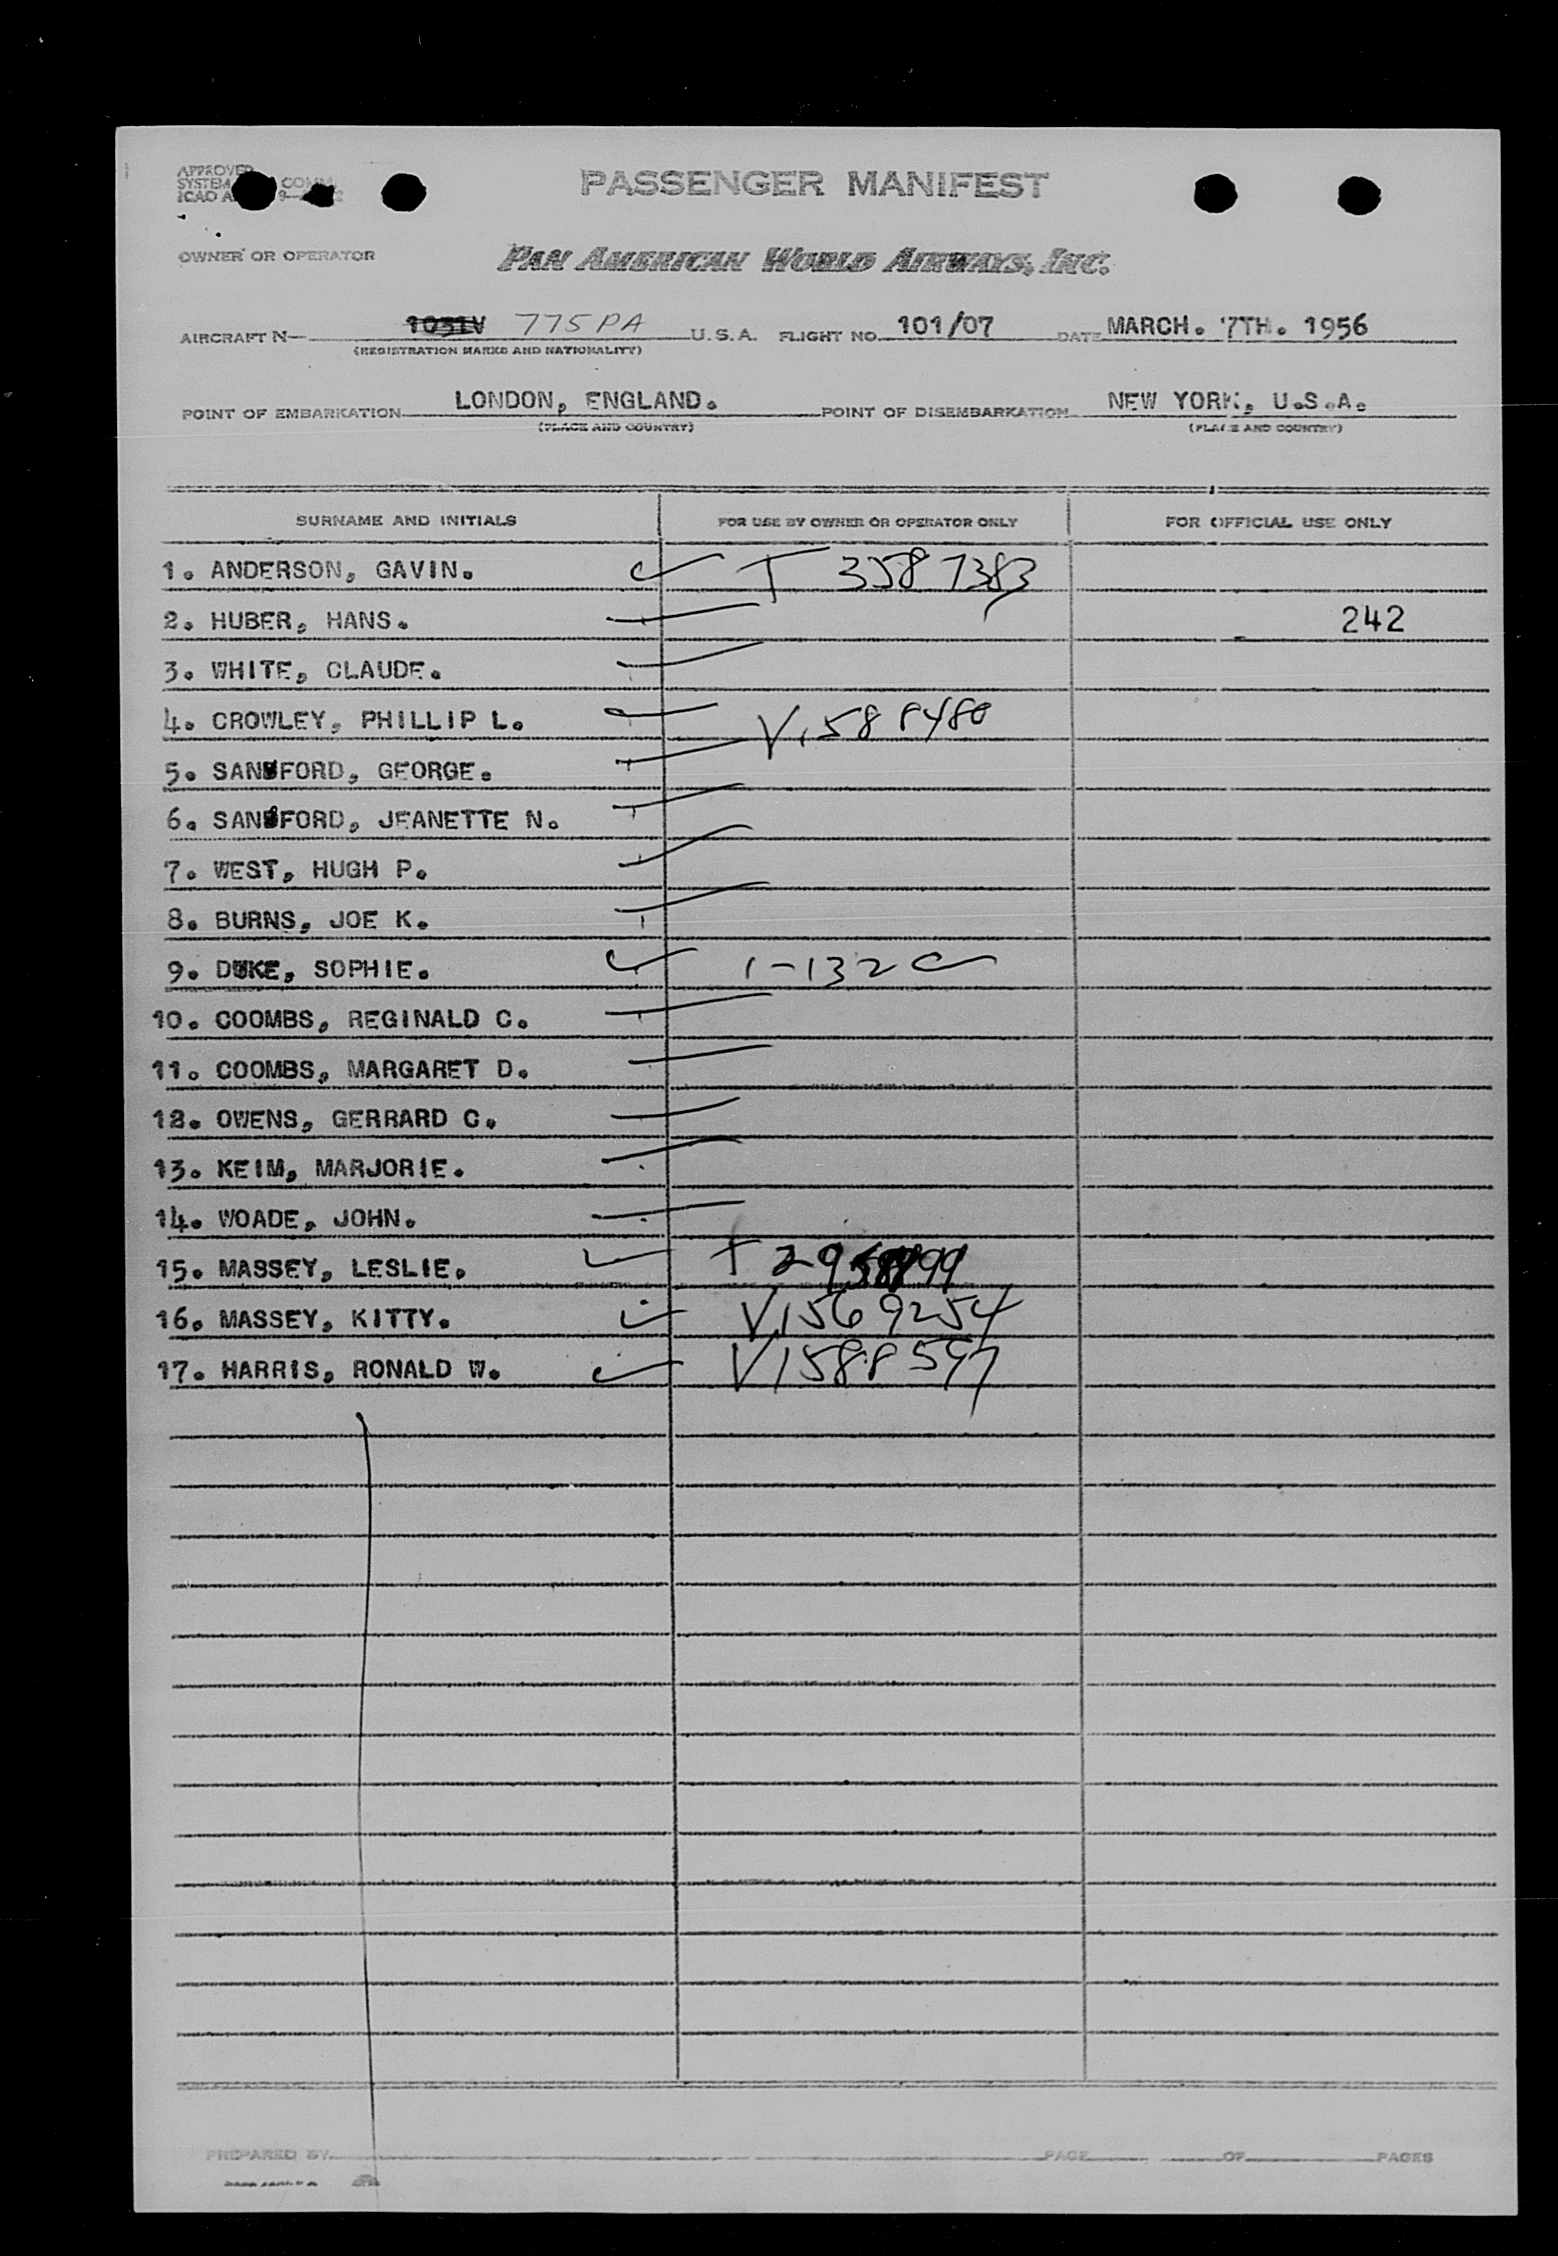 APPROVED
SYSTEM COMM
ICAO A 9—
PASSENGER MANIFEST
OWNER OR OPERATOR PAN AMERICAN WORLD AIRWAYS, INC.
AIRCRAFT N— 1031V 775PA U.S.A. FLIGHT NO. 101/07 DATE MARCH. 7TH. 1956
(REGISTRATION MARKS AND NATIONALITY)
POINT OF EMBARKATION LONDON, ENGLAND. POINT OF DISEMBARKATION NEW YORK, U.S.A.
(PLACE AND COUNTRY) (PLACE AND COUNTRY)
SURNAME AND INITIALS FOR USE BY OWNER OR OPERATOR ONLY FOR OFFICIAL USE ONLY
1. ANDERSON, GAVIN. T 3587383
2. HUBER, HANS. 242
3. WHITE, CLAUDE.
4. CROWLEY, PHILLIP L. V1588480
5. SANDFORD, GEORGE.
6. SANDFORD, JEANETTE N.
7. WEST, HUGH P.
8. BURNS, JOE K.
9. DUKE, SOPHIE. 1-132 C
10. COOMBS, REGINALD C.
11. COOMBS, MARGARET D.
12. OWENS, GERRARD C.
13. KEIM, MARJORIE.
14. WOADE, JOHN.
15. MASSEY, LESLIE. T
16. MASSEY, KITTY. V1569254
17. HARRIS, RONALD W. V1588597
PREPARED BY PAGE OF PAGES